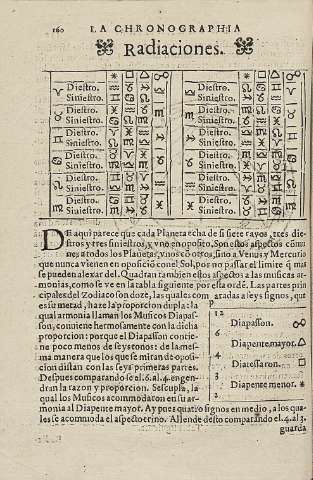 160 LA CHRONOGRAPHIA
Radiaciones.
Diestro. Diestro.
Siniestro. Siniestro.
Diestro. Diestro.
Siniestro. Siniestro.
Diestro. Diestro.
Siniestro. Siniestro.
Diestro. Diestro.
Siniestro. Siniestro.
Diestro. Diestro.
Siniestro. Siniestro.
Diestro. Diestro.
Siniestro. Siniestro.
DE aqui parece que cada Planeta echa de si siete rayos, tres dies-
tros y tres siniestros, y vno en oposito. Son estos aspectos cōmu
nes a todos los Planetas, vnos cō otros, sino a Venus y Mercurio
que nunca vienen en oposiciō con el Sol, por no passar el limite q̄ mas
se pueden alexar del. Quadran tambien estos aspectos a las musicas ar-
monias, como se ve en la tabla siguiente por esta ordē. Las partes prin
cipales del Zodiaco son doze, las quales comparadas a seys signos, que
es su metad, haze la proporcion dupla, la
qual armonia llaman los Musicos Diapas-
son, conuiene hermosamente con la dicha
proporcion: porque el Diapasson contie-
ne poco menos de seys tonos: de la mes-
ma manera que los que se miran de oposi-
cion distan con las seys primeras partes.
Despues comparando se el .6. al .4. en gen-
dran la razon y proporcion. Sescupla, la
qual los Musicos acommodaron en su ar-
monia al Diapente mayor. Ay pues quatro signos en medio, a los qua-
les se acomoda el aspecto trino. Allende desto comparando el .4. al 3.
guarda
12
Diapasson. ☍
6
Diapente mayor. △
4
Diatessaron. □
3
Diapente menor. *
2